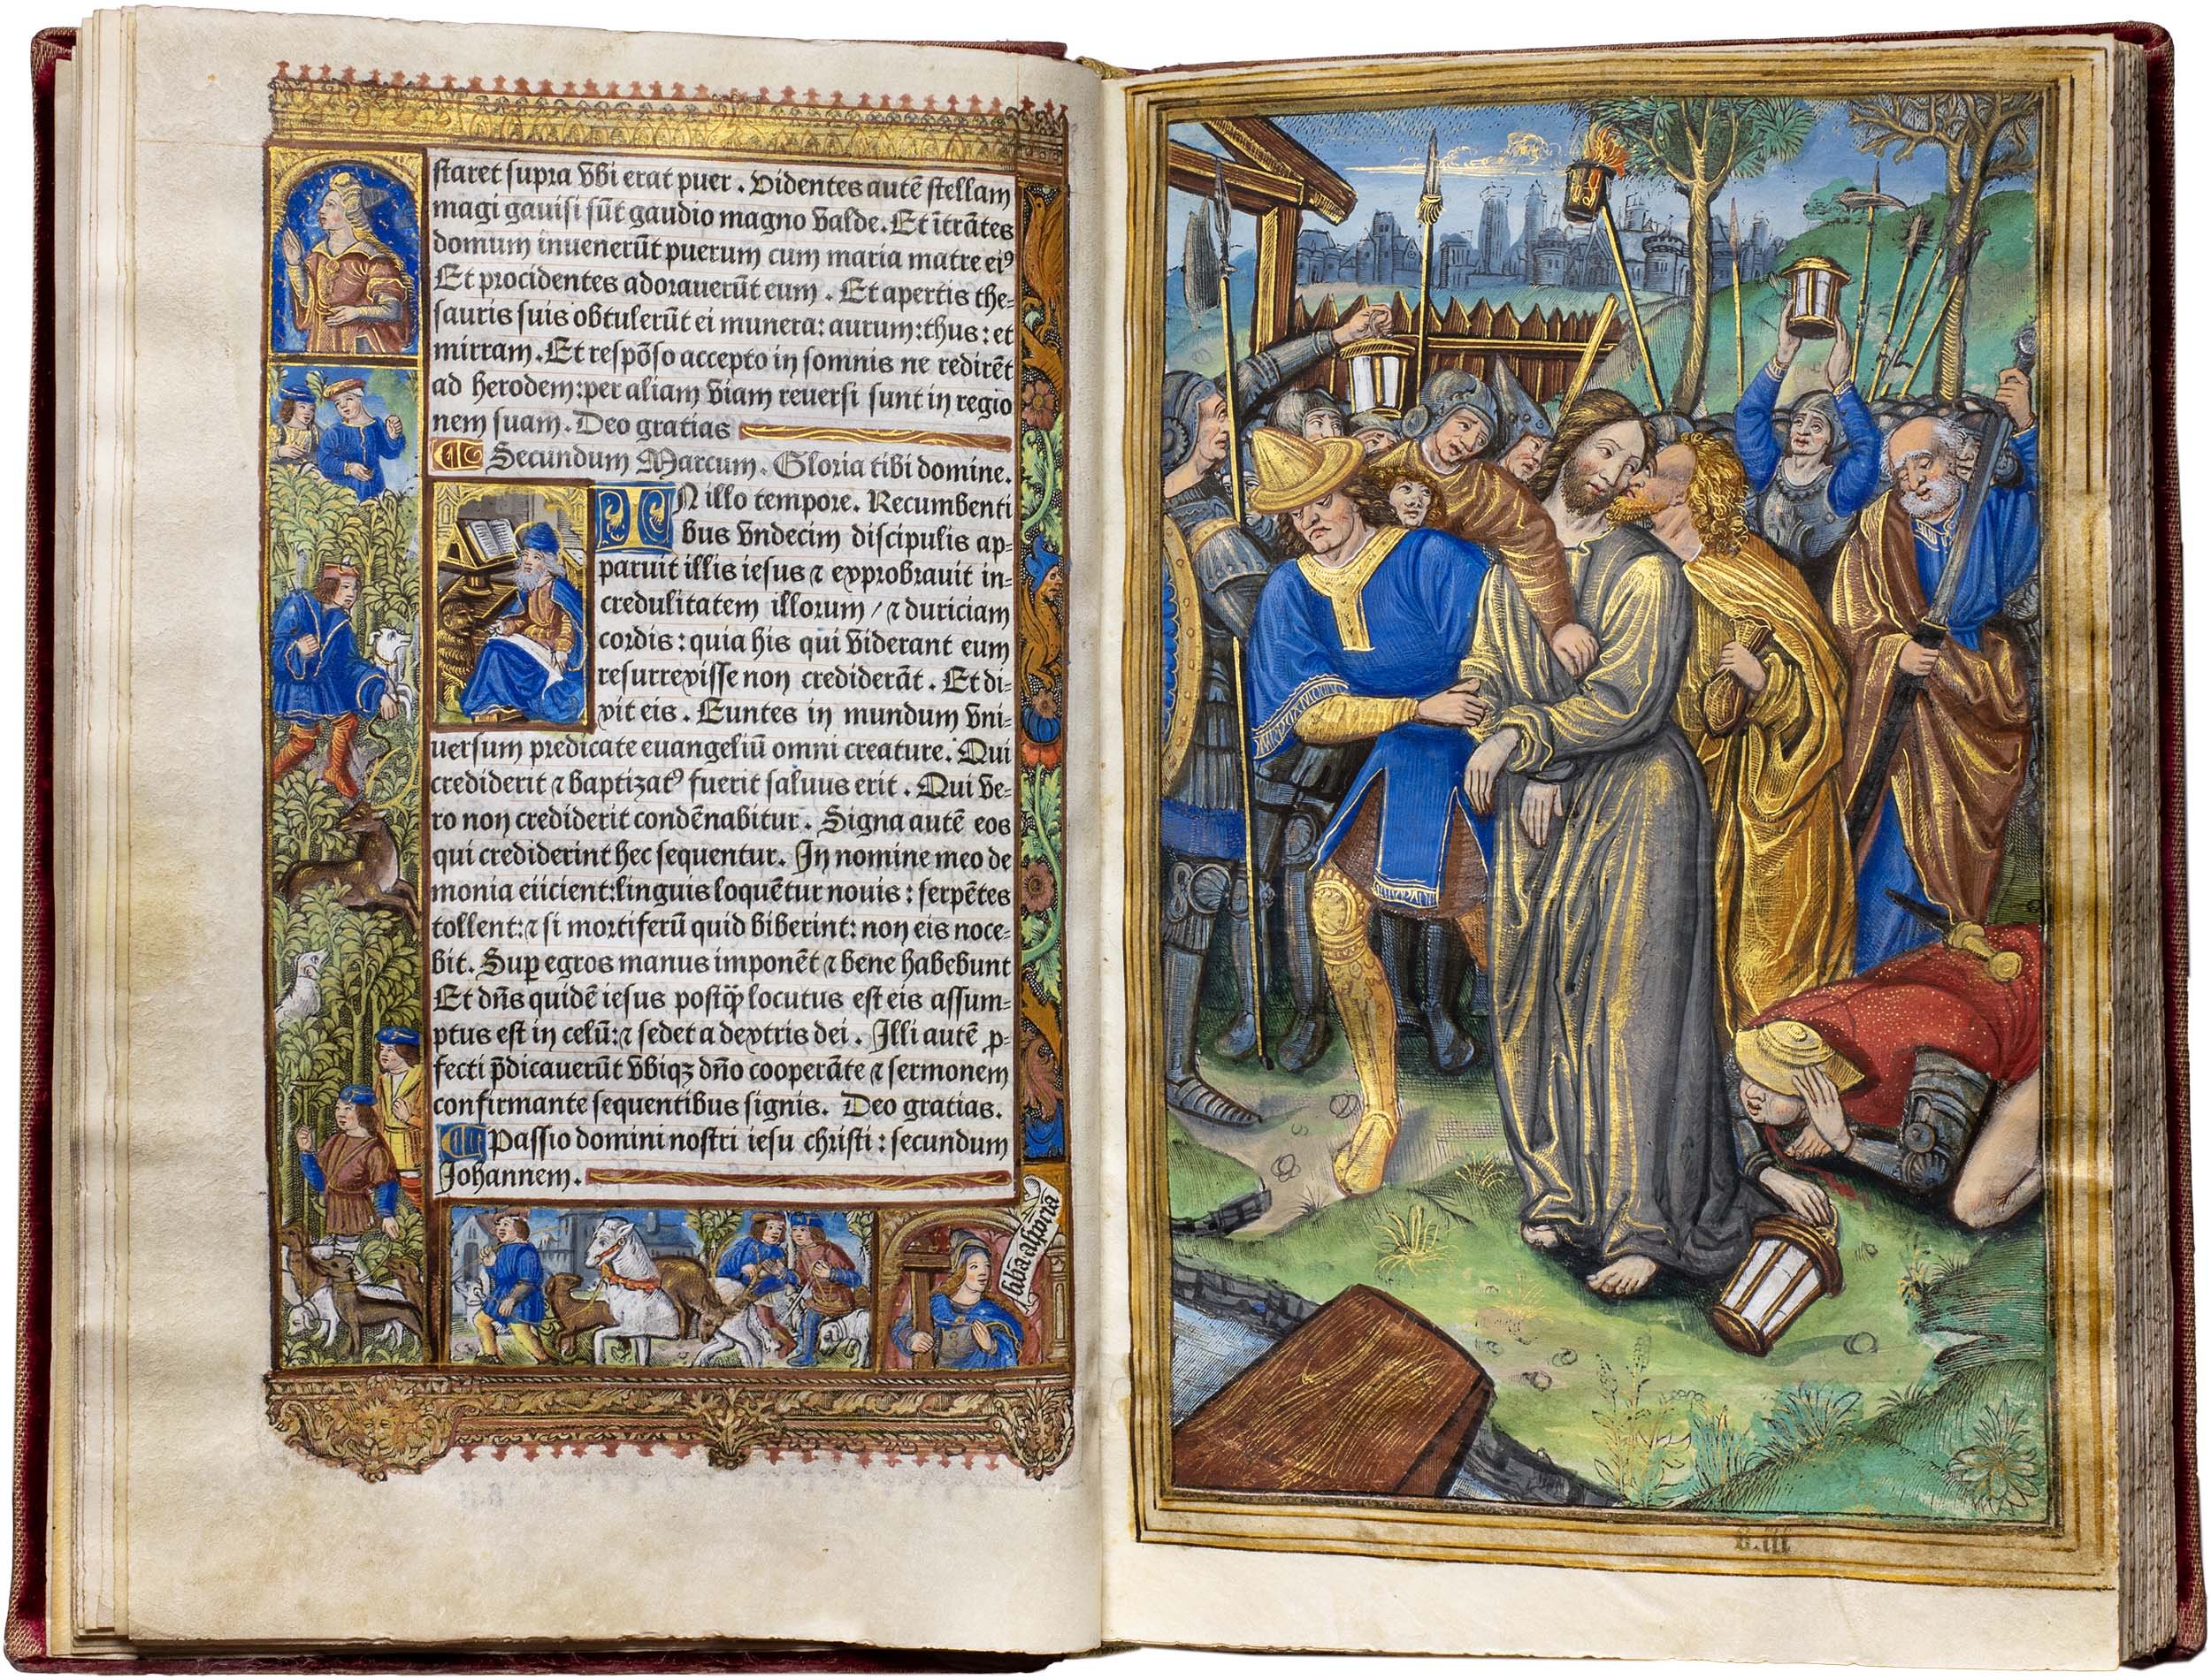 staret supra vbi erat puer. Videntes autē stellam
magi gauisi sūt gaudio magno valde. Et ītrātes
domum inuenerūt puerum cum maria matre eiꝰ
Et procidentes adorauerūt eum. Et apertis the=
sauris suis obtulerūt ei munera: aurum: thus: et
mirram. Et respōso accepto in somnis ne redirēt
ad herodem: per aliam viam reuersi sunt in regio
nem suam. Deo gratias
Secundum Marcum. Gloria tibi domine.
IN illo tempore. Recumbenti
bus vndecim discipulis ap=
paruit illis iesus ⁊ exprobrauit in=
credulitatem illorum / ⁊ duriciam
cordis: quia his qui viderant eum
resurrexisse non crediderāt. Et di=
xit eis. Euntes in mundum vni=
uersum predicate euangeliū omni creature. Qui
crediderit ⁊ baptizatꝰ fuerit saluus erit. Qui ve=
ro non crediderit condēnabitur. Signa autē eos
qui crediderint hec sequentur. In nomine meo de
monia eiicient: linguis loquētur nouis: serpētes
tollent: ⁊ si mortiferū quid biberint: non eis noce=
bit. Suꝑ egros manus imponēt ⁊ bene habebunt
Et dn̄s quidē iesus postꝙ̄ locutus est eis assum=
ptus est in celū: ⁊ sedet a dextris dei. Illi autē ꝓ=
fecti p̄dicauerūt vbiqꝫ dn̄o cooperāte ⁊ sermonem
confirmante sequentibus signis. Deo gratias.
Passio domini nostri iesu christi: secundum
Johannem.
B.iii